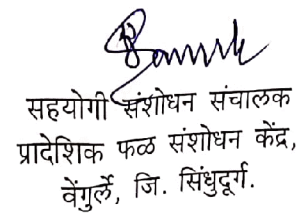 सहयोगी संशोधन संचालक
प्रादेशिक फळ संशोधन केंद्र,
वेंगुर्ले, जि. सिंधुदूर्ग.